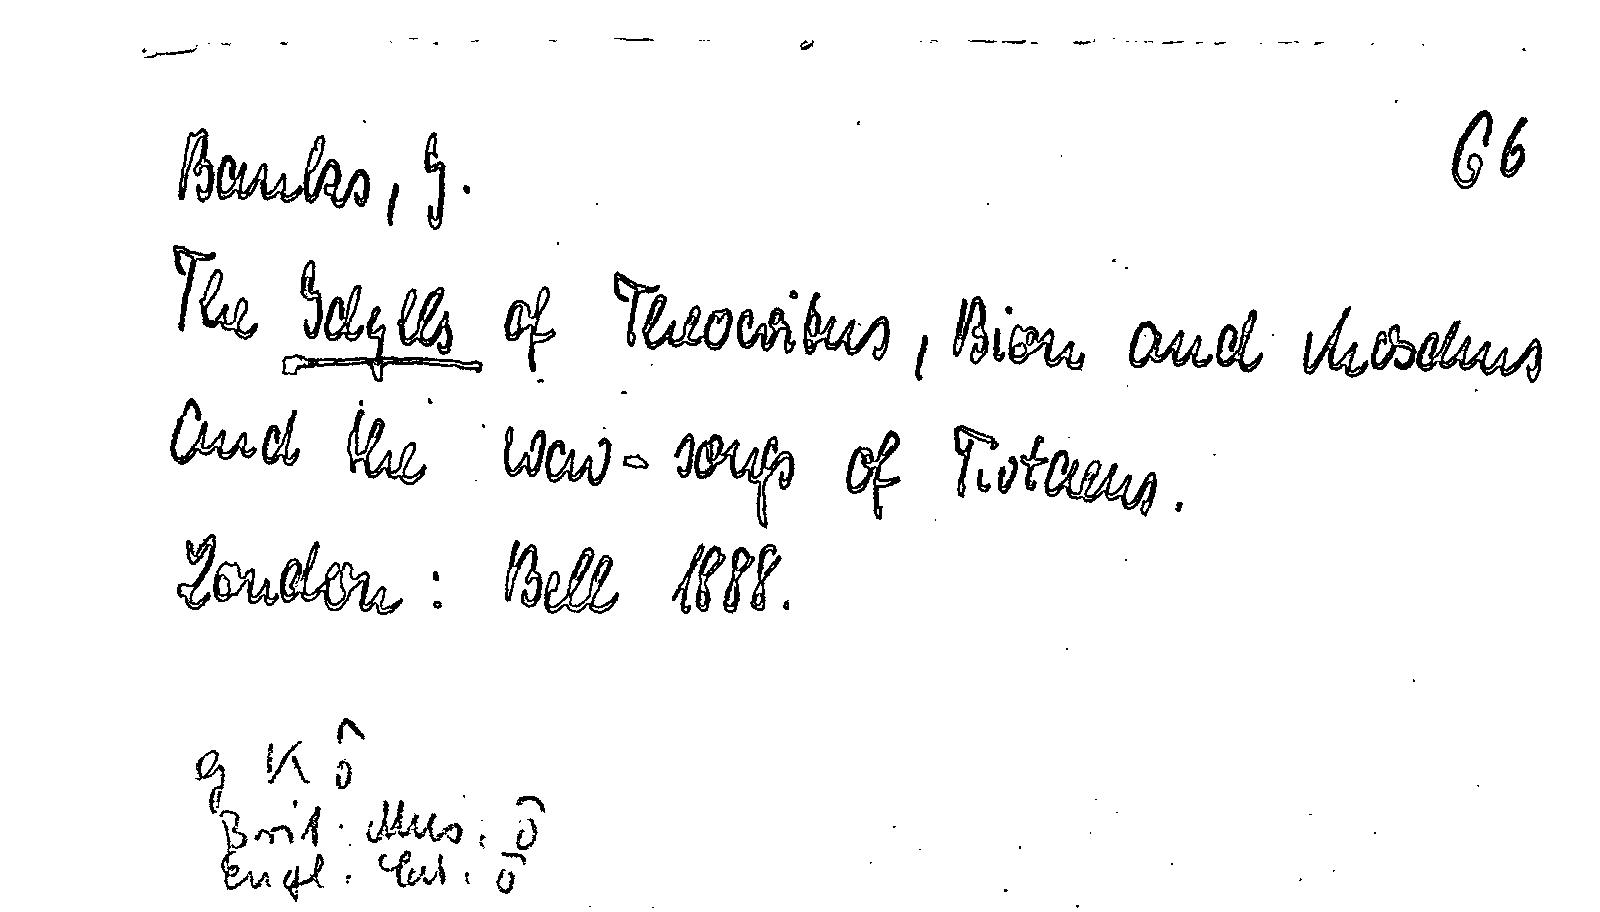 Banks, J. G6
The Idylls of Theocritus, Bion and Moschus
and the war-songs of Tyrtaeus.
London: Bell 1888.
g K ô
Brit. Mus. ō
Engl. Cat. ō